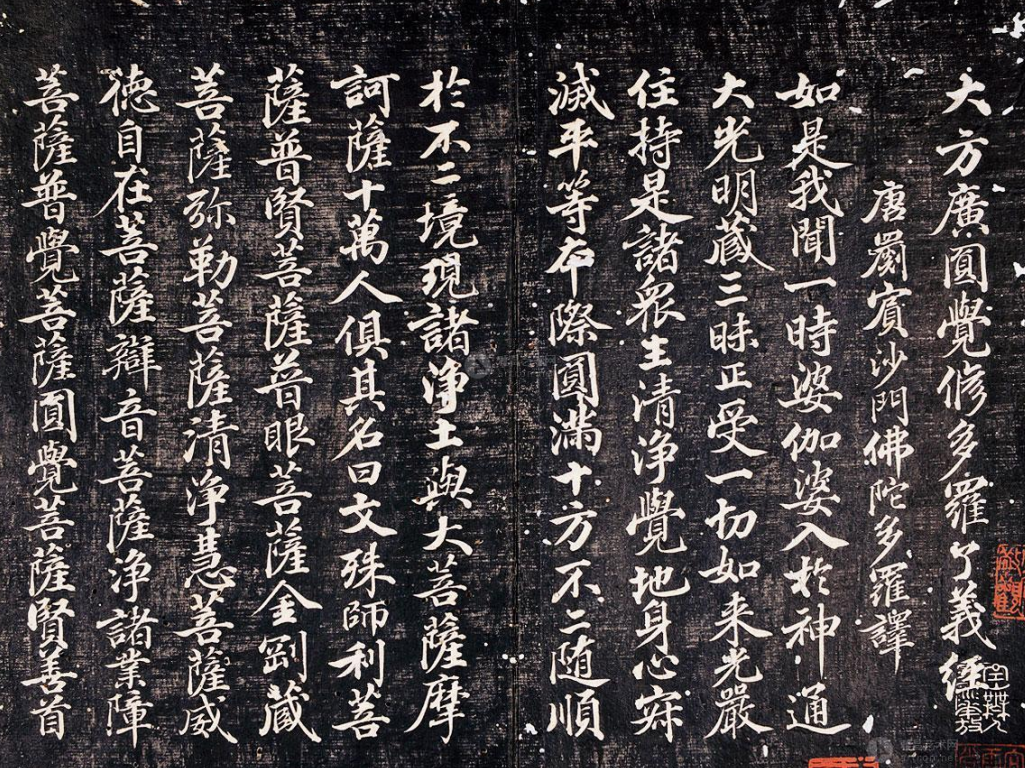 大方廣圓覺修多羅了義經
唐罽賓沙門佛陀多羅譯
如是我聞一時婆伽婆入於神通
大光明藏三昧正受一切如來光嚴
住持是諸眾生清淨覺地身心寂
滅平等本際圓滿十方不二隨順
於不二境現諸淨土與大菩薩摩
訶薩十萬人俱其名曰文殊師利菩
薩普賢菩薩普眼菩薩金剛藏
菩薩弥勒菩薩清淨慧菩薩威
德自在菩薩辯音菩薩淨諸業障
菩薩普覺菩薩圓覺菩薩賢善首